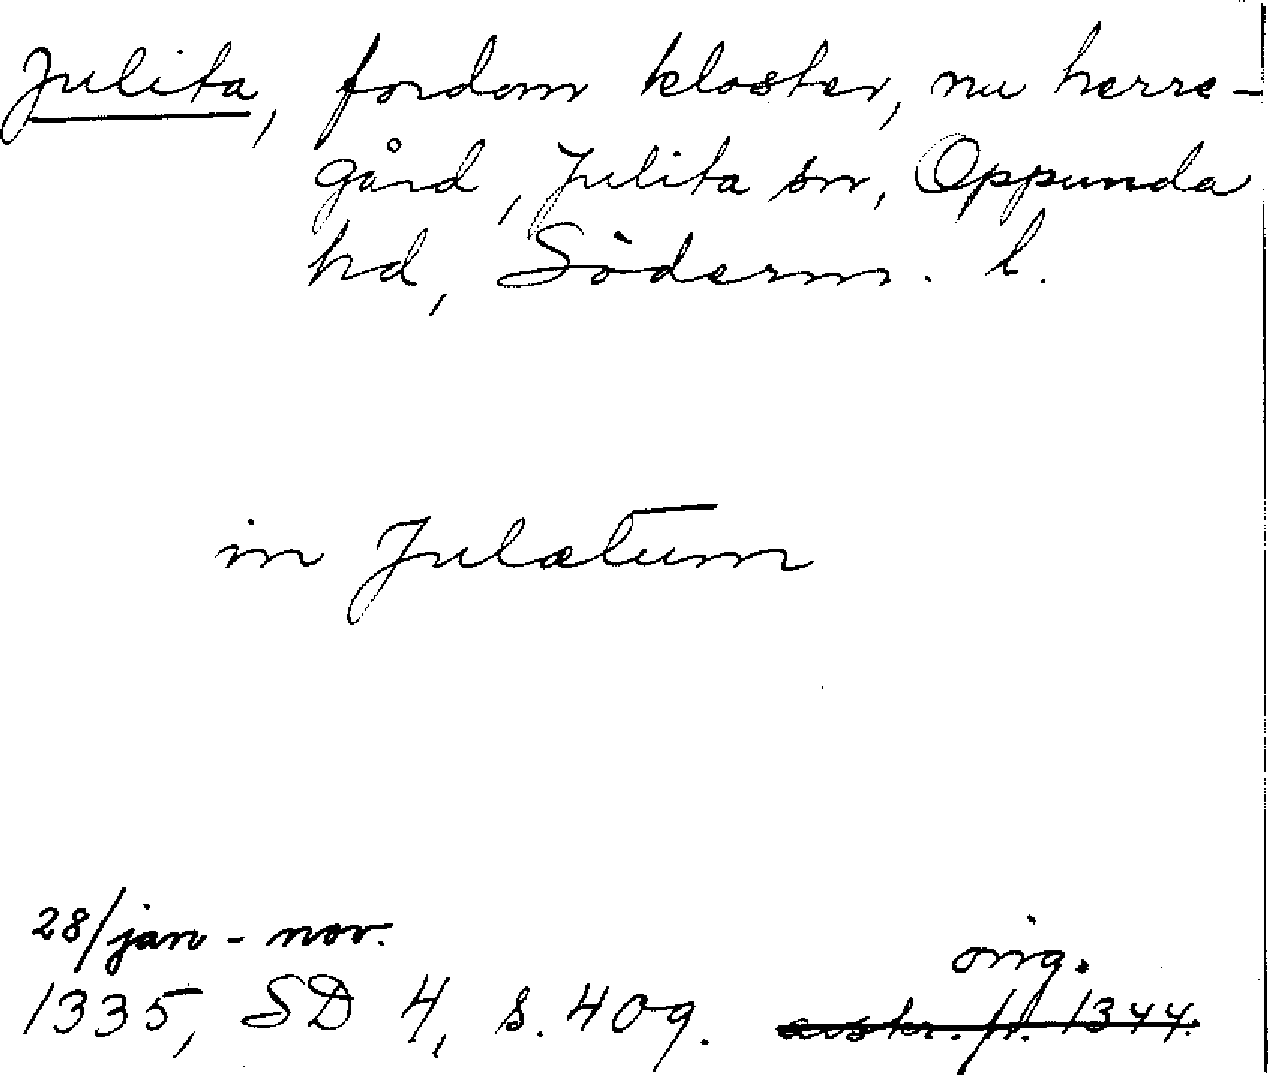 Julita, fordom kloster, nu herre-
gård, Julita sn, Oppunda
hd, Söderm. l.
in Julætum
28/jan - nov.
1335, SD 4, s. 409.
orig.
avskr. fr. 1344.